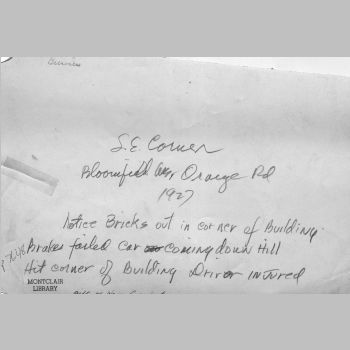 Business
S.E. Corner
Bloomfield Ave Orange Rd
1927
Notice Bricks out in corner of Building
Brakes failed car coming down Hill
Hit corner of Building Driver injured
MONTCLAIR
LIBRARY